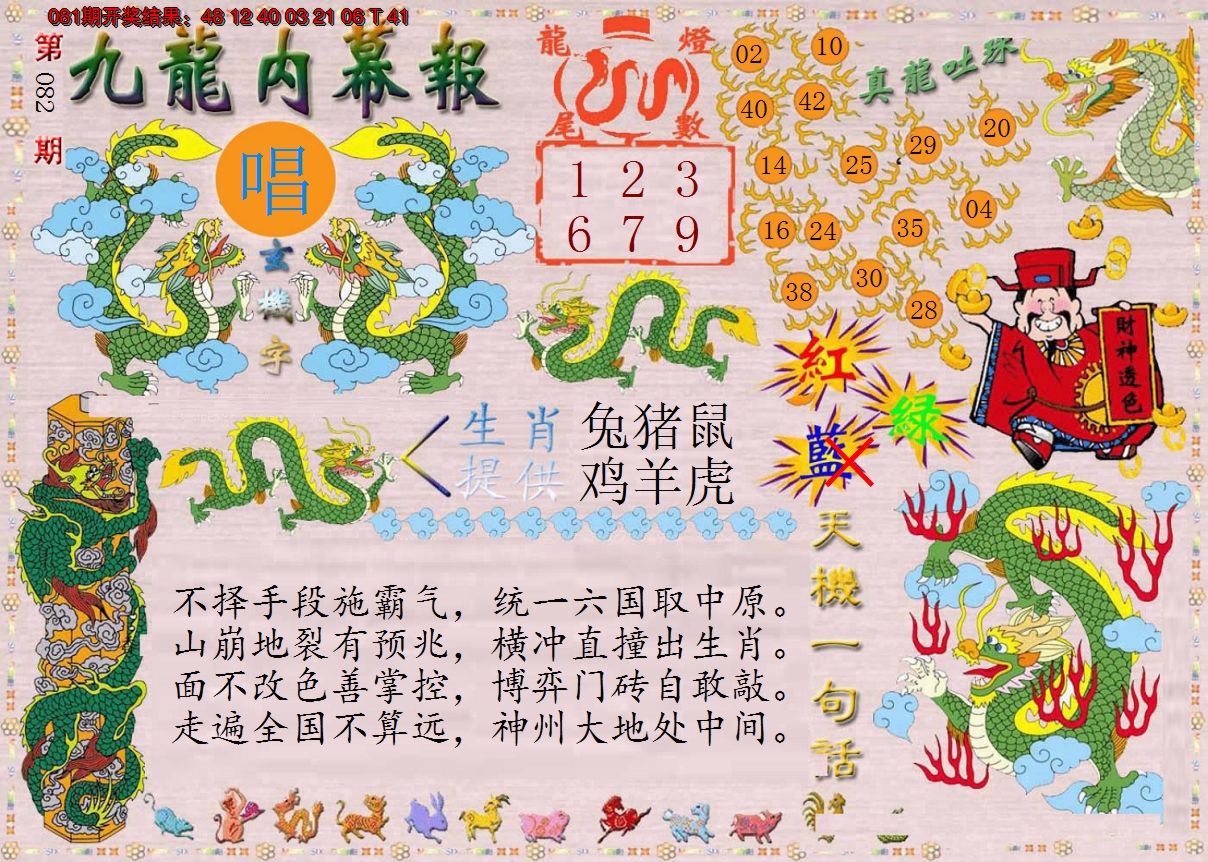 081期开奖结果：48 12 40 03 21 06 T 41
第082期
九龍内幕報
唱
玄機字
龍燈尾數
1 2 3
6 7 9
真龍吐珠
02 10
40 42
14 25 29 20
16 24 35 04
38 30 28
財神透色
紅
綠
藍
生肖提供
兔猪鼠
鸡羊虎
天機一句話
不择手段施霸气，统一六国取中原。
山崩地裂有预兆，横冲直撞出生肖。
面不改色善掌控，博弈门砖自敢敲。
走遍全国不算远，神州大地处中间。